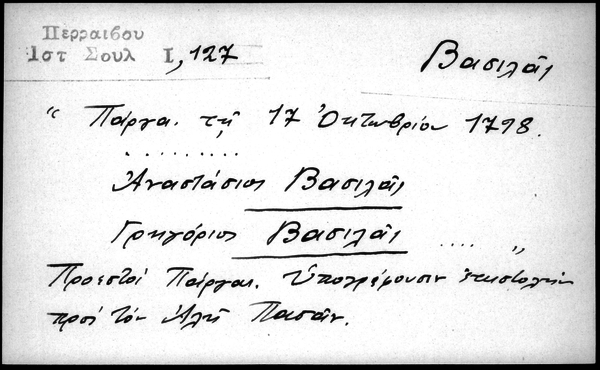 Περραιβου
Ιστ Σουλ Ι, 127
Βασιλᾶς
" Πάργα. τῇ 17 Ὀκτωβρίου 1798.
. . . . . . . .
Ἀναστάσιος Βασιλᾶς
Γρηγόριος Βασιλᾶς .... "
Προεστοί Πάργας. Ὑπογράφουσιν ἐπιστολήν
πρός τόν Ἀλῆ Πασᾶν.